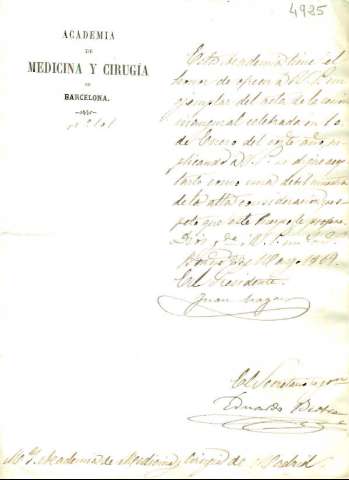 4925
ACADEMIA
DE
MEDICINA Y CIRUGÍA
DE
BARCELONA.
Esta Academia tiene el
honor de ofrecer á V. S. un
ejemplar del acta de la sesion
inaugural celebrada en
de Enero del corte año, su
plicando á V. S. se digne acep
tarlo como una debil muestra
de la alta consideracion y res
peto que este Cuerpo le profesa.
Dios gde á V. S. ms as
Mayo 1869.
El Presidente.
Juan
El Secretario
Eduardo
M. Y. Academia de Medicina y Cirugia de Madrid.